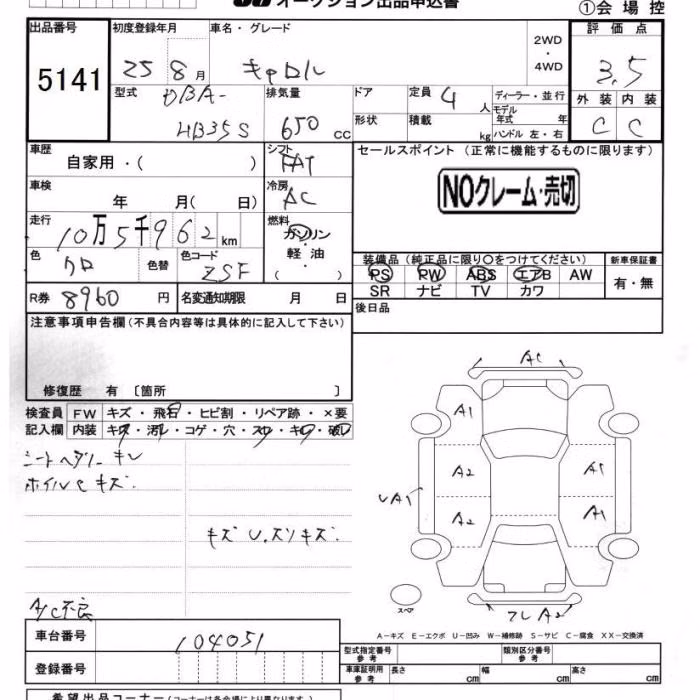 オークション出品申込書
①会場控
出品番号
5141
初度登録年月
25 8 月
車名・グレード
キャロル
2WD
・
4WD
評価点
3.5
外装 内装
C C
型式
DBA-
HB35S
排気量
650 cc
ドア
形状
定員
4 人
積載
kg
ディーラー・並行
モデル
年式 年
ハンドル 左・右
車歴
自家用・( )
シフト
FAT
セールスポイント (正常に機能するものに限ります)
NOクレーム・売切
車検
年 月( 日)
冷房
AC
走行
10万5千962km
燃料
ガソリン
軽油
( )
色
クロ
色替
色コード
ZSF
装備品 (純正品に限り○をつけてください)
新車保証書
PS PW ABS エアB AW
SR ナビ TV カワ
有・無
R券 8960 円
名変通知期限 月 日
後日品
注意事項申告欄(不具合内容等は具体的に記入して下さい)
修復歴 有 〔箇所 〕
検査員 FW キズ・飛石・ヒビ割・リペア跡・×要
記入欄 内装 キズ・汚レ・コゲ・穴・スレ・キレ・破レ
シートヘタリ キレ
ホイルCキズ
キズ U.スリキズ.
A/C不良
A1
A1
A2
A1
UA1
A2
A1
スペア
フレA2
A-キズ E-エクボ U-凹み W-補修跡 S-サビ C-腐食 XX-交換済
車台番号 104051
登録番号
型式指定番号
参考
類別区分番号
参考
車庫証明用
参考
長さ cm 幅 cm 高さ cm
希望出品コーナー(コーナーは各会場により異なります)